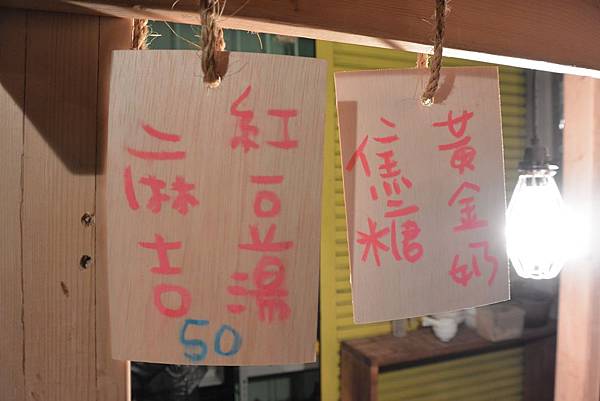 紅豆湯
麻吉
50
黃金奶
焦糖